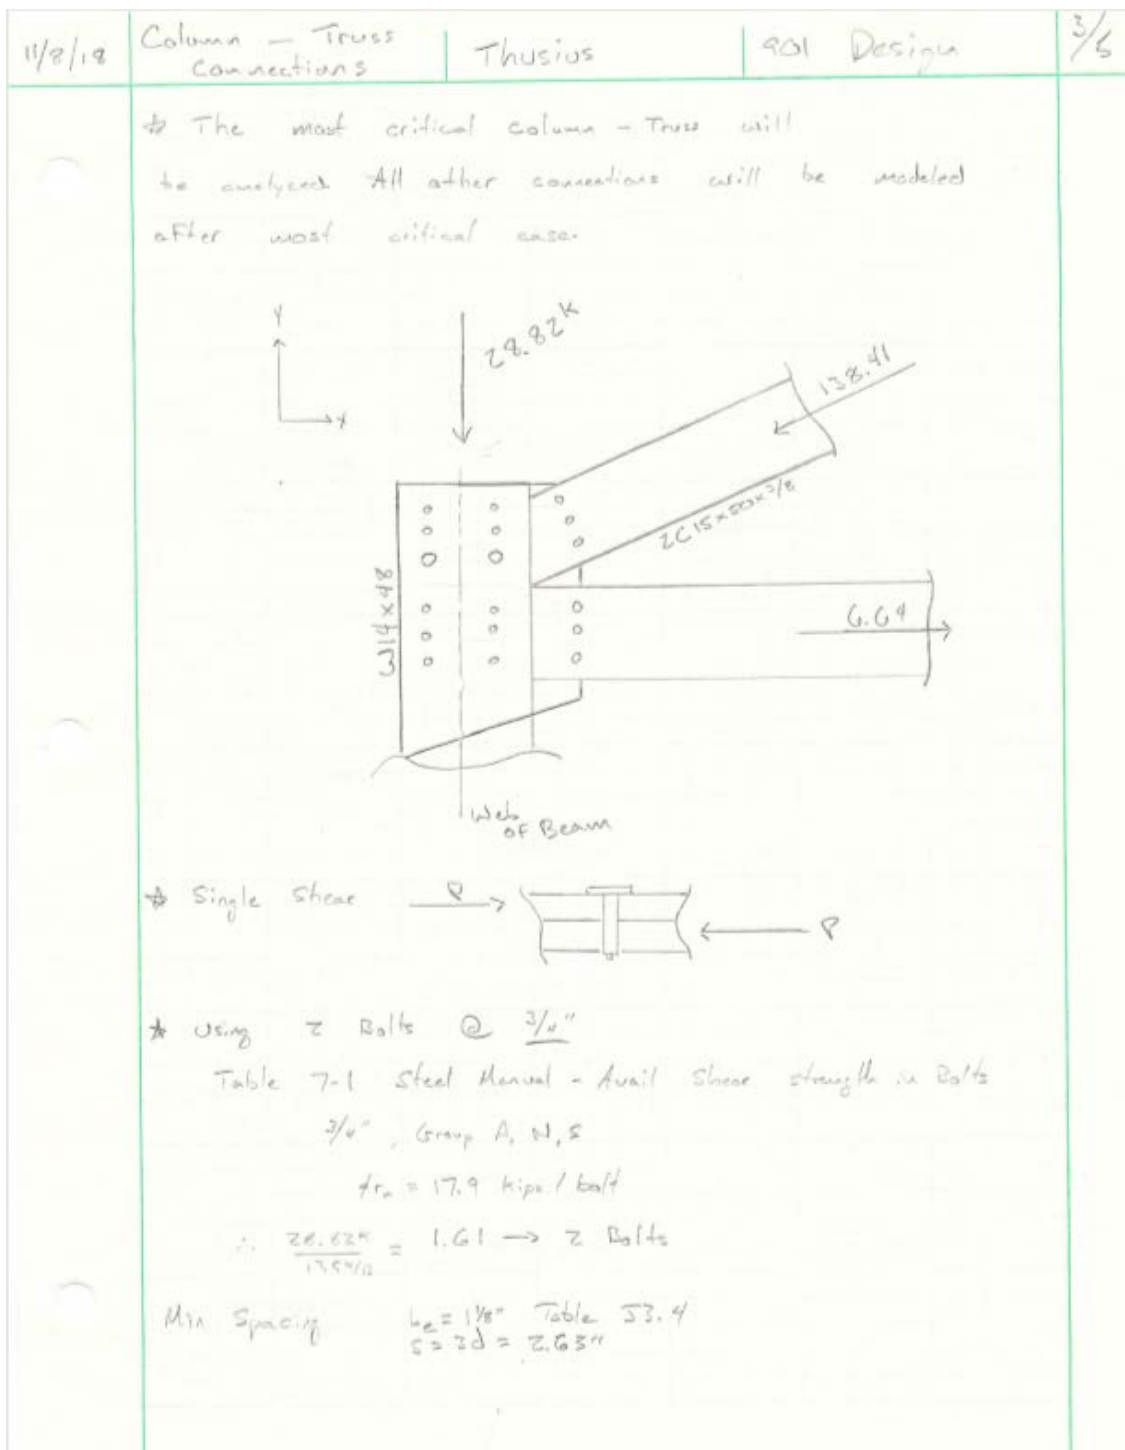 11/8/18
Column - Truss
Connections
Thusius
901 Design
3/5
* The most critical column - Truss will
be analyzed. All other connections will be modeled
after most critical case.
Y
28.82k
138.41
2C15x50x3/8
W14x48
6.64
Web
of Beam
* Single Shear
P
P
* Using 2 Bolts @ 3/4"
Table 7-1 Steel Manual - Avail Shear strength in Bolts
3/4", Group A, N, S
ϕrn = 17.9 kips / bolt
∴ 28.82k = 1.61 → 2 Bolts
Min Spacing Le = 1 1/8" Table J3.4
s = 3d = 2.63"